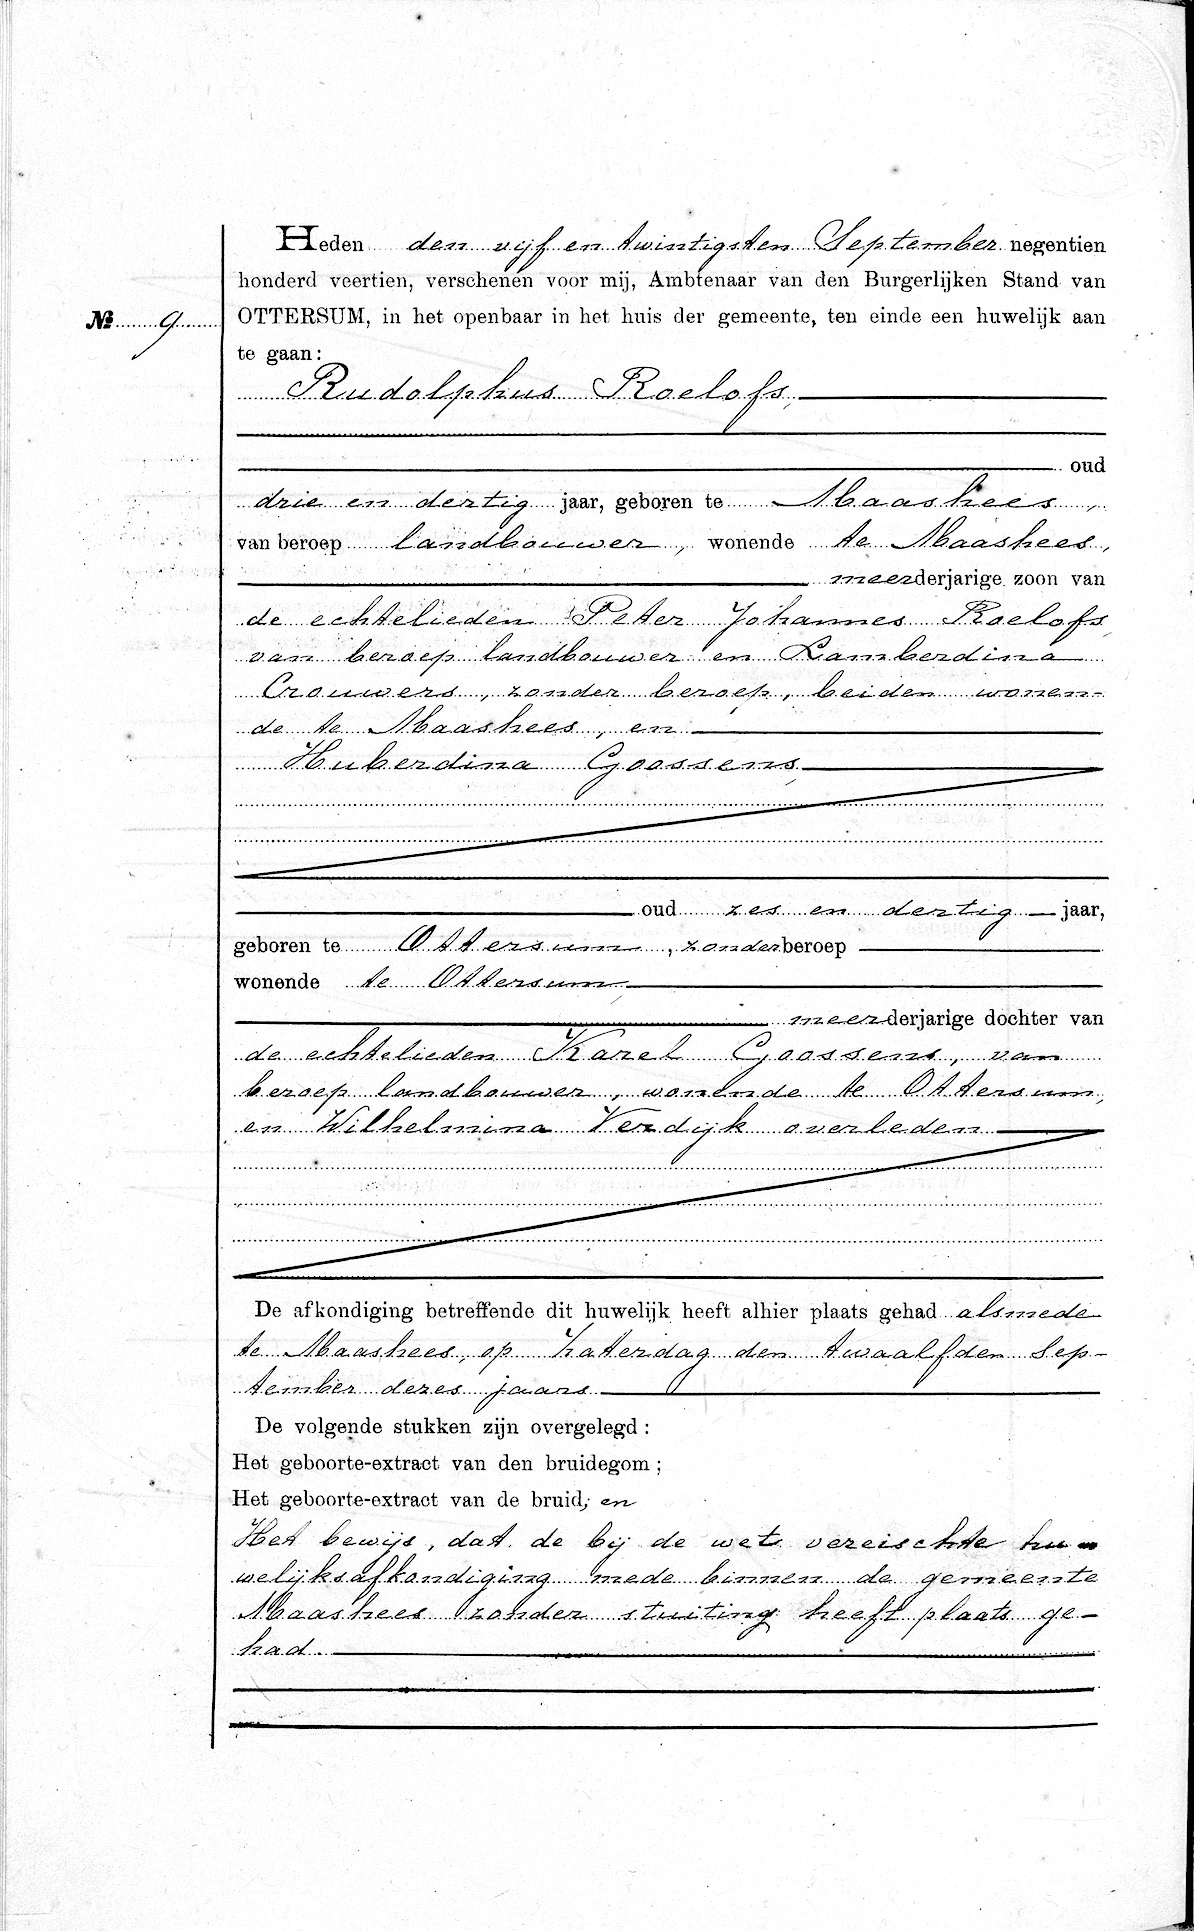 Heden den vijf en twintigsten September negentien
honderd veertien, verschenen voor mij, Ambtenaar van den Burgerlijken Stand van
№ 9 OTTERSUM, in het openbaar in het huis der gemeente, ten einde een huwelijk aan
te gaan:
Rudolphus Roelofs,
oud
drie en dertig jaar, geboren te Maashees,
van beroep landbouwer, wonende te Maashees,
meerderjarige zoon van
de echtelieden Peter Johannes Roelofs
van beroep landbouwer en Lamberdina
Crouwers, zonder beroep, beiden wonen-
de te Maashees, en
Huberdina Goossens,
oud zes en dertig jaar,
geboren te Ottersum, zonder beroep
wonende te Ottersum,
meerderjarige dochter van
de echtelieden Karel Goossens, van
beroep landbouwer, wonende te Ottersum,
en Wilhelmina Verdijk overleden
De afkondiging betreffende dit huwelijk heeft alhier plaats gehad alsmede
te Maashees, op Zaterdag den twaalfden Sep-
tember dezes jaars
De volgende stukken zijn overgelegd:
Het geboorte-extract van den bruidegom;
Het geboorte-extract van de bruid; en
Het bewijs, dat de bij de wet vereischte hu-
welijksafkondiging mede binnen de gemeente
Maashees zonder stuiting heeft plaats ge-
had.